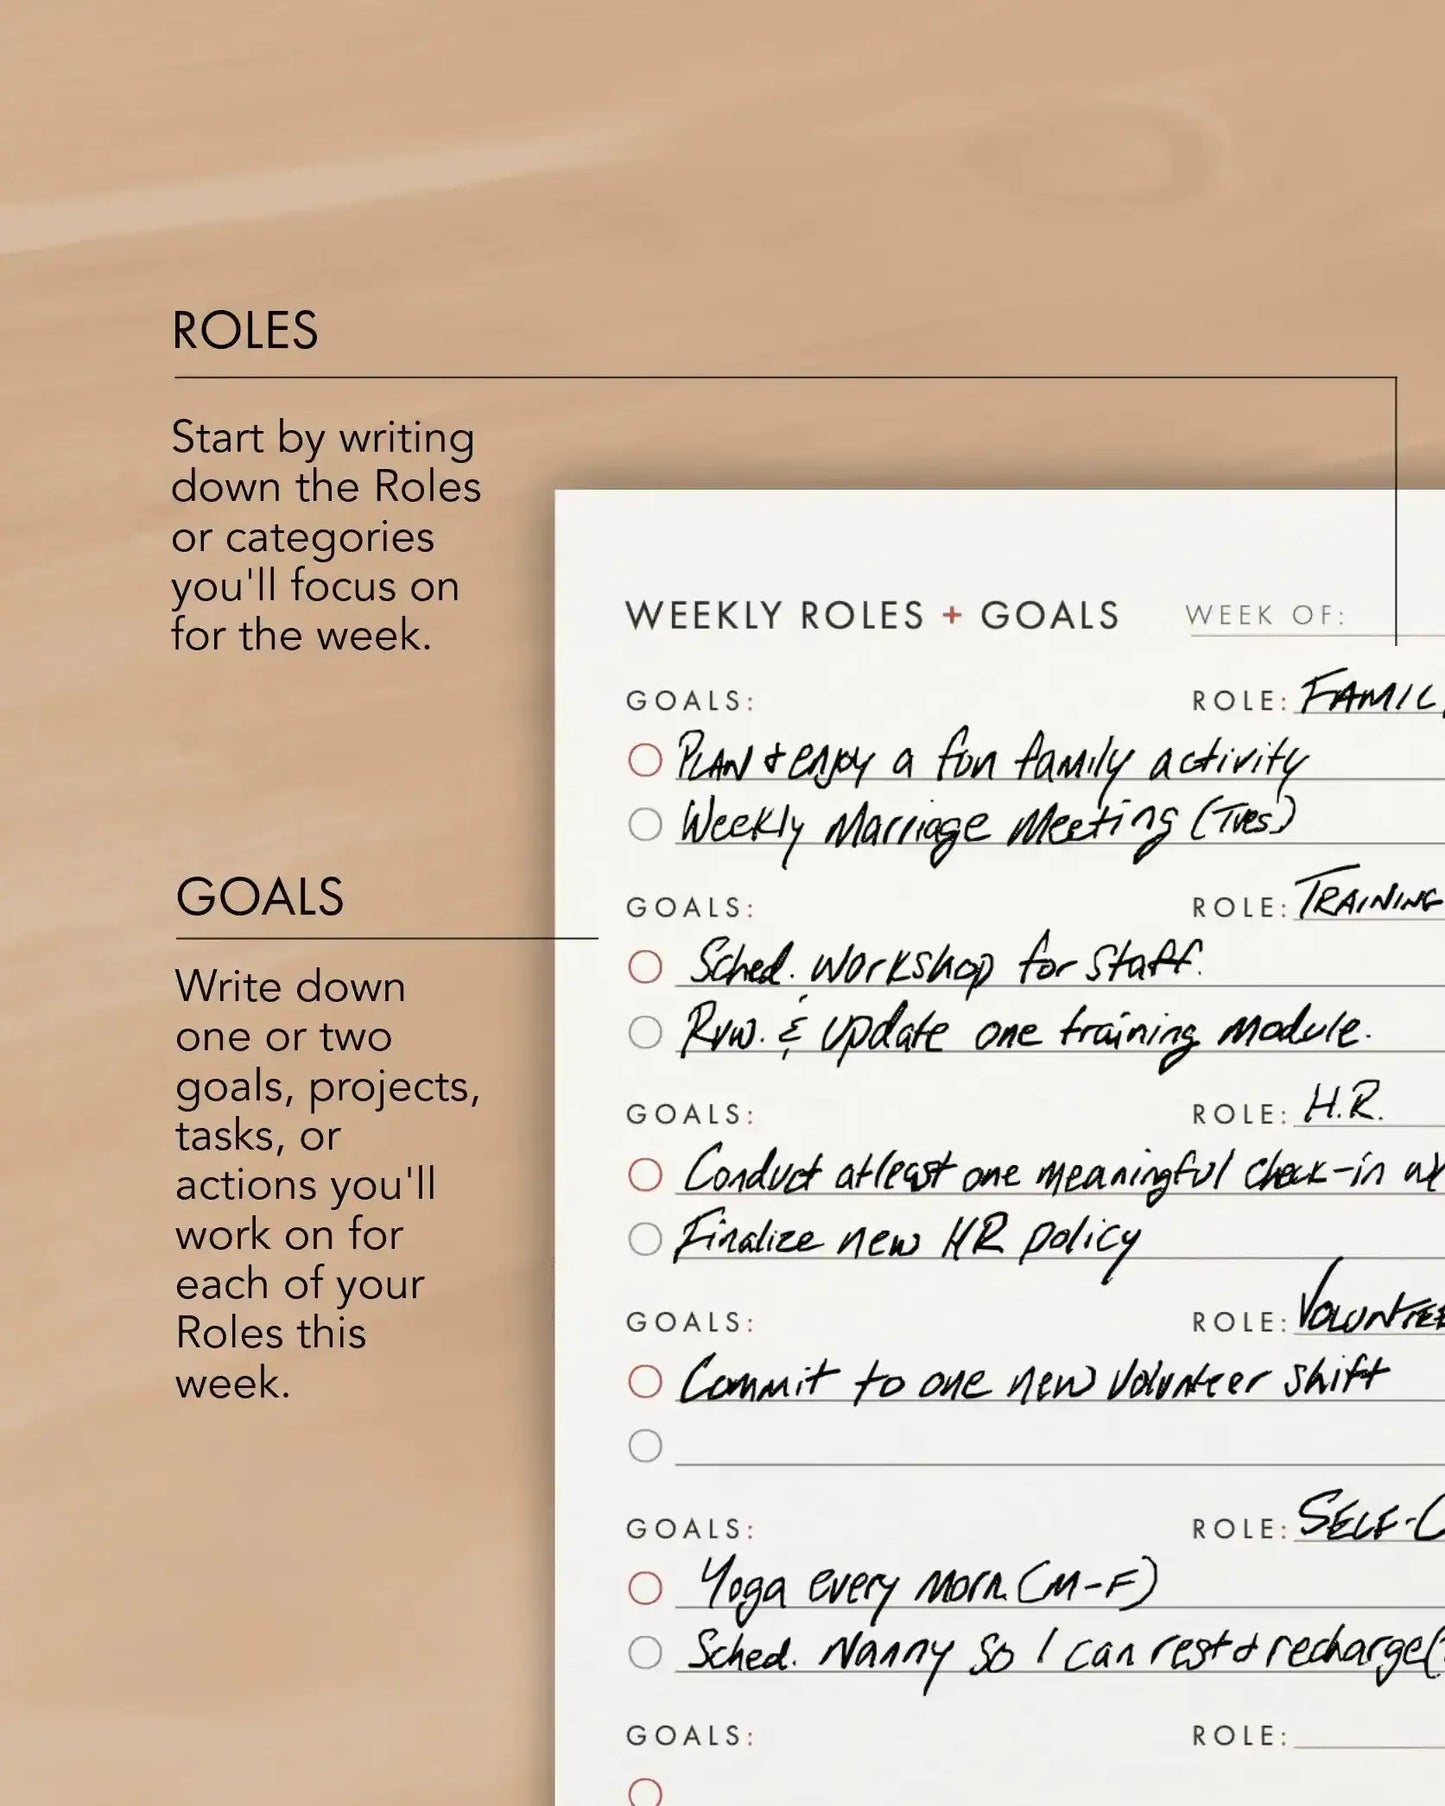 ROLES
Start by writing
down the Roles
or categories
you'll focus on
for the week.
GOALS
Write down
one or two
goals, projects,
tasks, or
actions you'll
work on for
each of your
Roles this
week.
WEEKLY ROLES + GOALS WEEK OF:
GOALS: ROLE:
PLAN & enjoy a fun family activity
Weekly Marriage Meeting (Tues)
GOALS: ROLE: TRAINING
Sched. workshop for staff.
Rvw. & update one training module.
GOALS: ROLE: H.R.
Conduct atleast one meaningful check-in
Finalize new HR policy
GOALS: ROLE:
Commit to one new volunteer shift
GOALS: ROLE:
Yoga every morn. (M-F)
Sched. Nanny so I can rest & recharge
GOALS: ROLE: